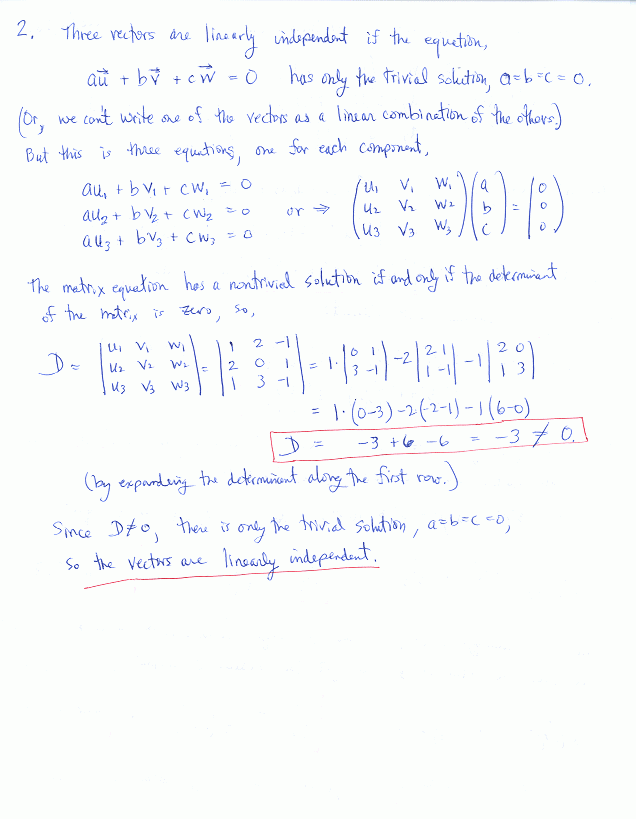 2. Three vectors are linearly independent if the equation,
au⃗ + bv⃗ + cw⃗ = 0 has only the trivial solution, a=b=c=0.
(Or, we can't write one of the vectors as a linear combination of the others.)
But this is three equations, one for each component,
au₁ + bv₁ + cw₁ = 0
au₂ + bv₂ + cw₂ = 0 or ⇒ (u₁ v₁ w₁; u₂ v₂ w₂; u₃ v₃ w₃)(a; b; c) = (0; 0; 0)
au₃ + bv₃ + cw₃ = 0
The matrix equation has a nontrivial solution if and only if the determinant
of the matrix is zero, so,
D = |u₁ v₁ w₁; u₂ v₂ w₂; u₃ v₃ w₃| = |1 2 -1; 2 0 1; 1 3 -1| = 1·|0 1; 3 -1| -2|2 1; 1 -1| -1|2 0; 1 3|
= 1·(0-3) -2(-2-1) -1(6-0)
D = -3 +6 -6 = -3 ≠ 0.
(by expanding the determinent along the first row.)
Since D≠0, there is only the trivial solution, a=b=c=0,
so the vectors are linearly independent.